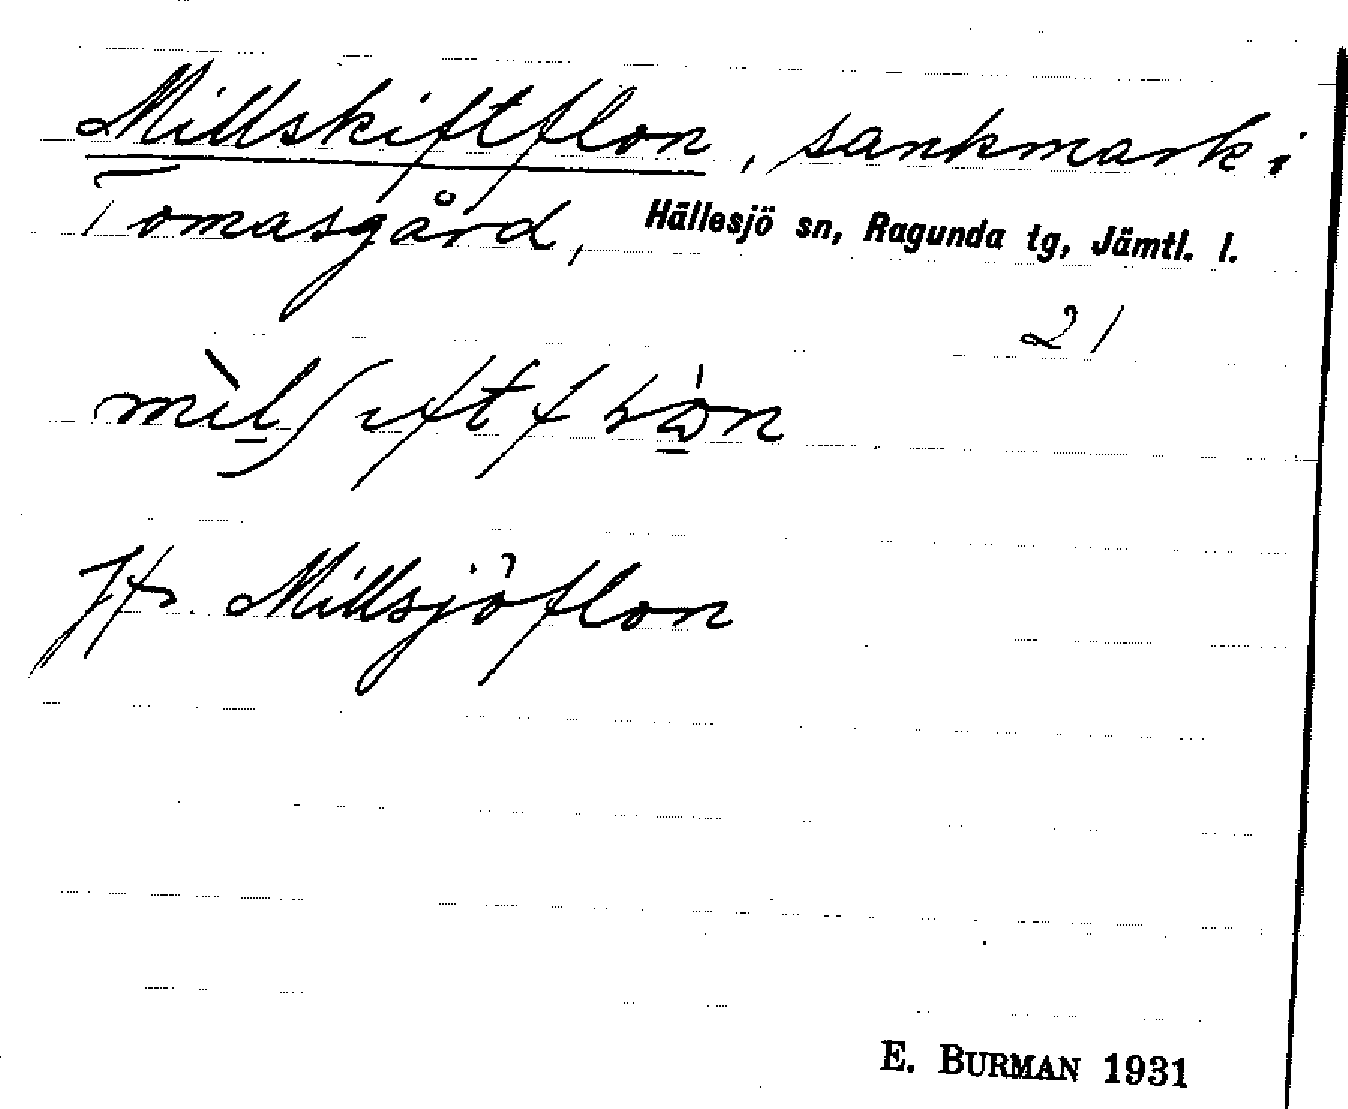 Millskiftflon, sankmark i
Tomasgård, Hällesjö sn, Ragunda tg, Jämtl. l.
21
Jfr Millsjöflon
E. BURMAN 1931